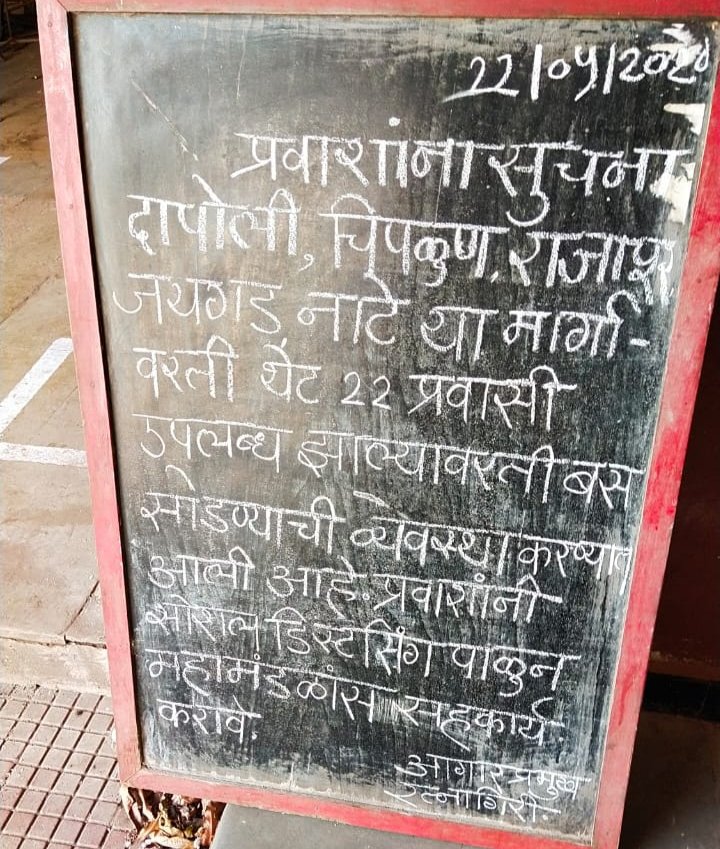 22/05/2020
प्रवाशांना सुचना
दापोली, चिपळुण, राजापूर
जयगड नाटे या मार्गा-
वरती थेट 22 प्रवासी
उपलब्ध झाल्यावरती बस
सोडण्याची व्येवस्था करण्यात
आली आहे. प्रवाशांनी
सोशल डिस्टसिंग पाळुन
महामंडळांस सहकार्य
करावे.
आगार प्रमुख
रत्नागिरी.